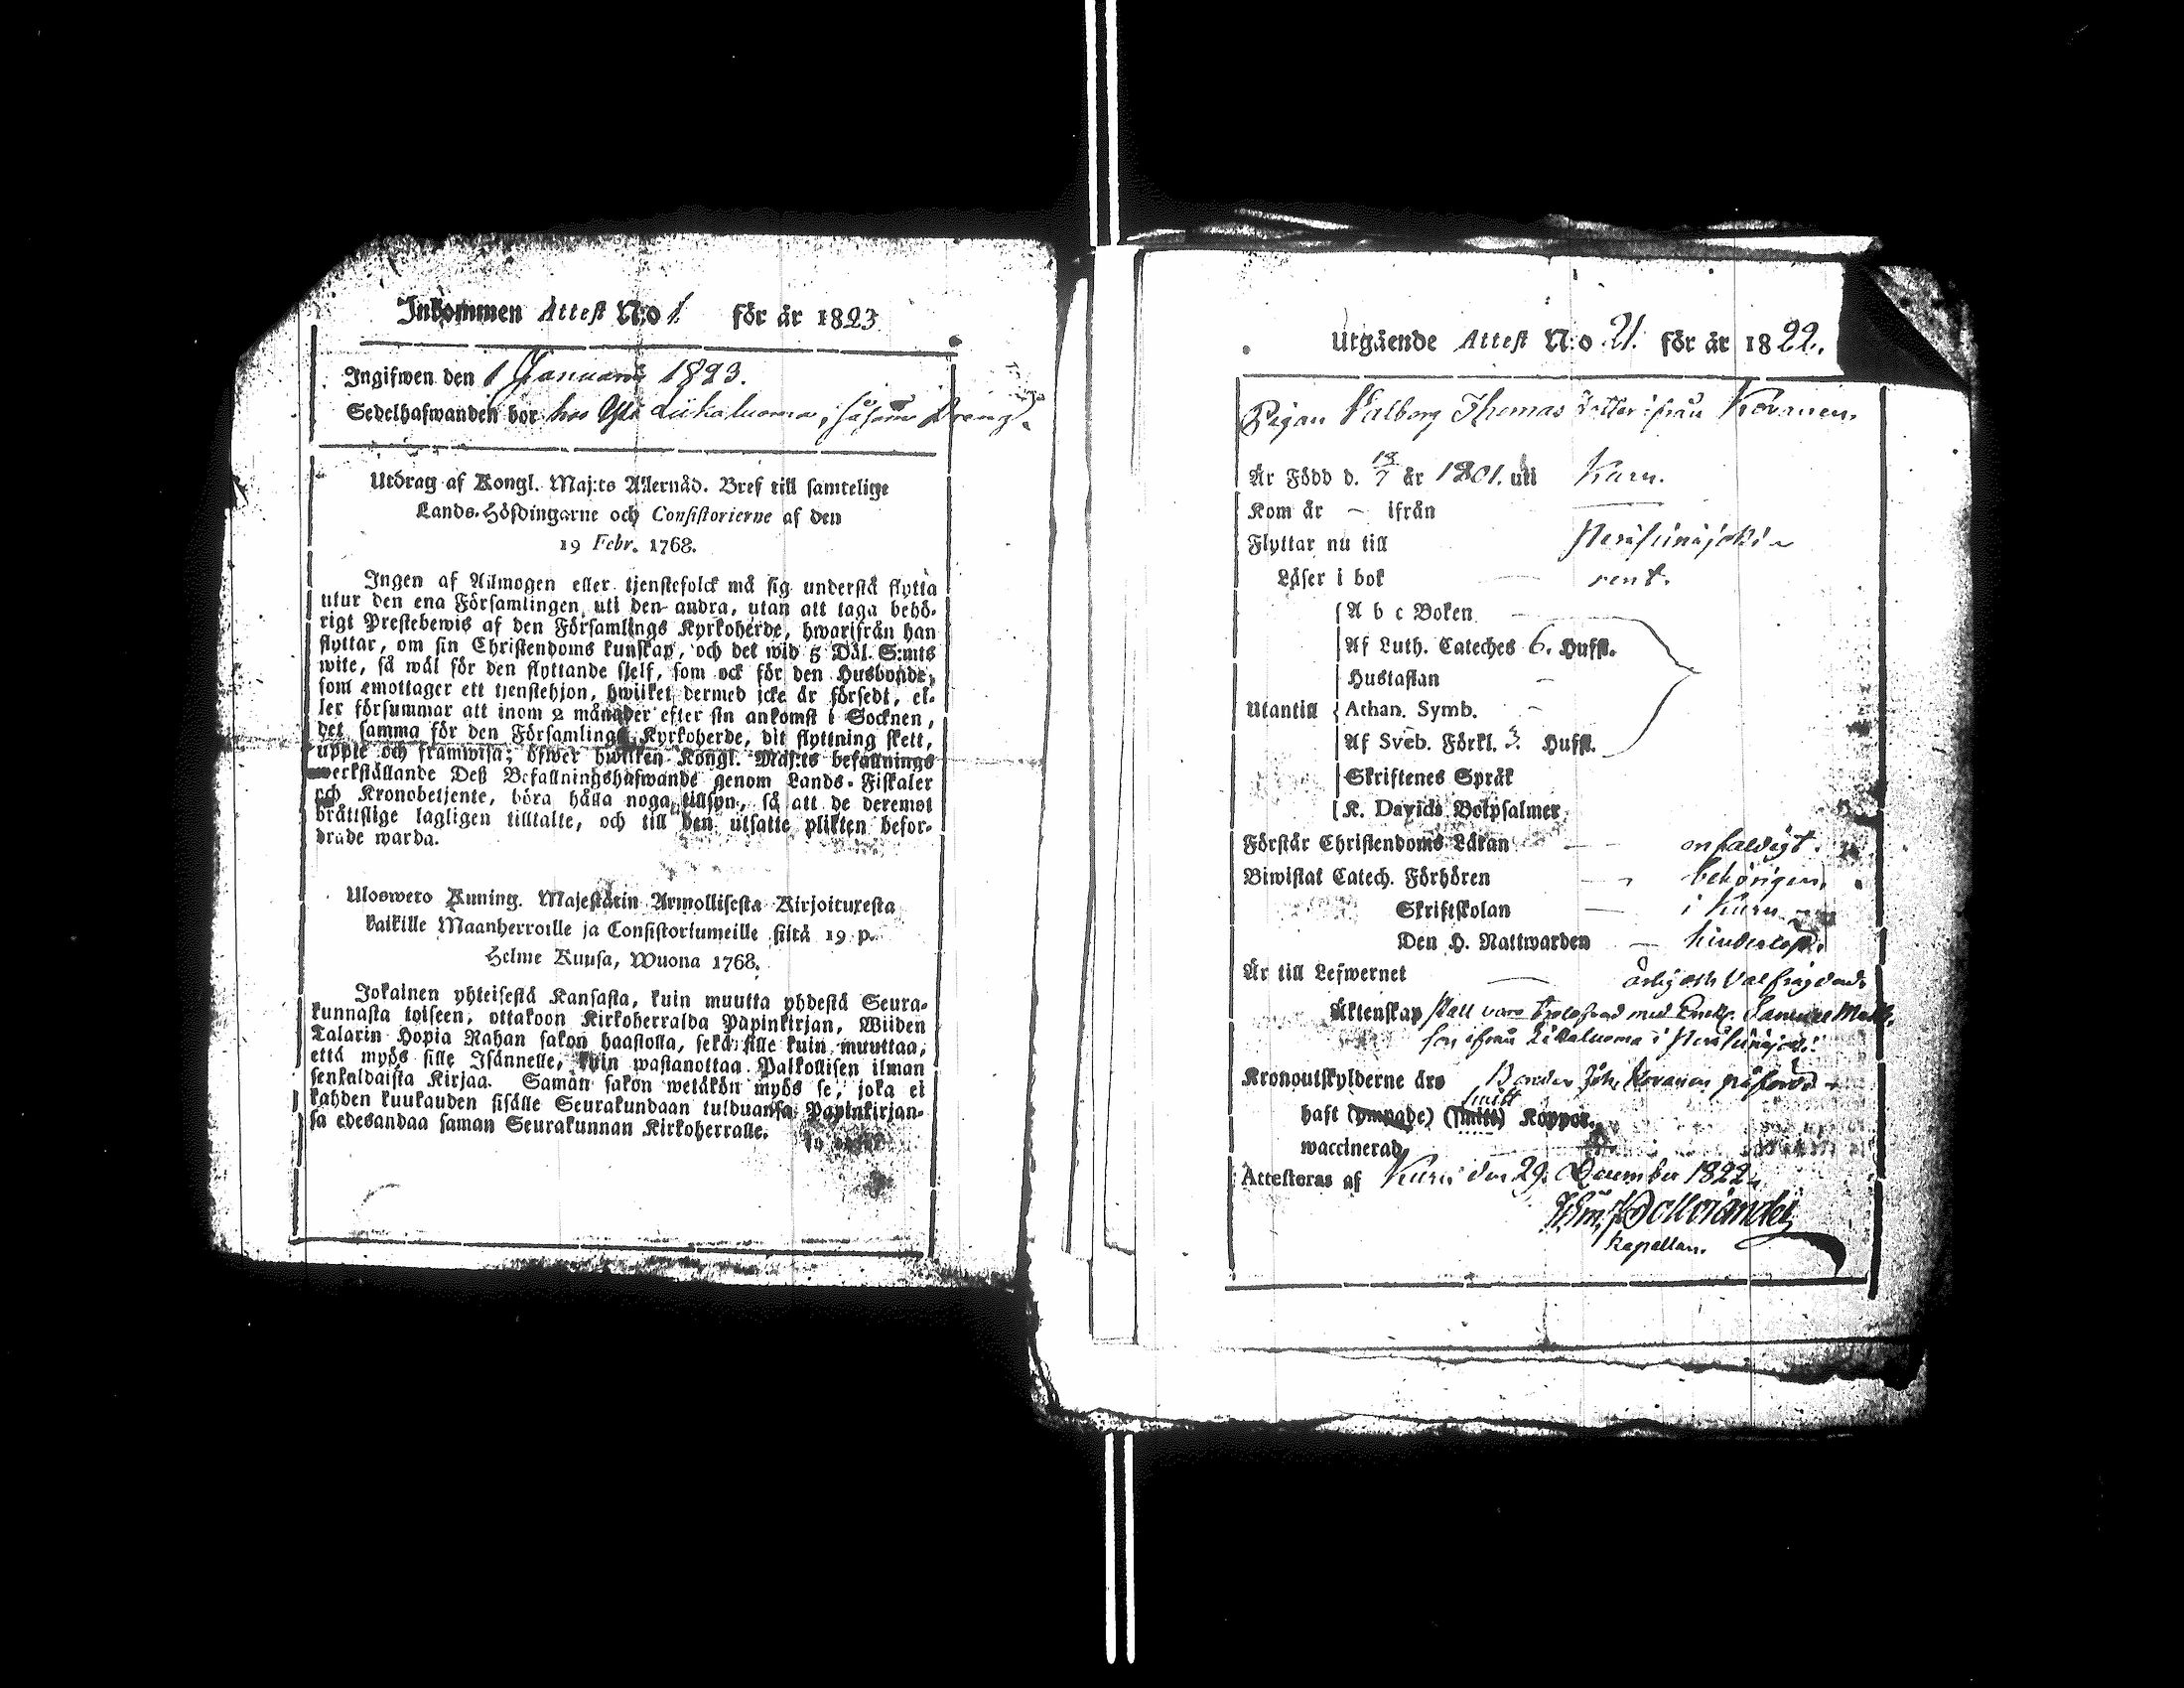 Inkommen Attest N:o 1. för år 1823
Ingifwen den 1 Januarii 1823.
Sedelhafwanden bor hos Yli Liikaluoma, såsom Dreng.
Utdrag af Kongl. Maj:ts Allernåd. Bref till samtelige
Lands-Höfdingarne och Consistorierne af den
19 Febr. 1768.
Ingen af Allmogen eller tjenstefolck må sig understå flytta
utur den ena Församlingen uti den andra, utan att taga behö-
rigt Prestebewis af den Församlings Kyrkoherde, hwarifrån han
flyttar, om sin Christendoms kunskap, och det wid 5 Dal. S:mts
wite, så wäl för den flyttande sjelf, som ock för den Husbonde,
som emottager ett tjenstehjon, hwilket dermed icke är försedt, el-
ler försummar att inom 2 månader efter sin ankomst i Socknen,
det samma för den Församlings Kyrkoherde, dit flyttning skett,
uppte och framwisa; öfwer hwilken Kongl. Maj:ts befallnings
werkställande Deß Befallningshafwande genom Lands-Fiskaler
och Kronobetjente, böra hålla noga tillsyn, så att de deremot
bråttslige lagligen tilltalte, och till den utsatte plikten befor-
drade warda.
Ulosweto Kuning. Majestätin Armollisesta Kirjoituxesta
kaikille Maanherroille ja Consistoriumeille siitä 19 p.
Helme Kuusa, Wuona 1768.
Jokainen yhteisestä Kansasta, kuin muutta yhdestä Seura-
kunnasta toiseen, ottakoon Kirkoherralda Papinkirjan, Wiiden
Talarin Hopia Rahan sakon haastolla, sekä sille kuin muuttaa,
että myös sille Isännelle, kuin wastanottaa Palkollisen ilman
senkaldaista Kirjaa. Saman sakon wetäkön myös se, joka ei
kahden kuukauden sisälle Seurakundaan tulduansa Papinkirjan-
sa edesandaa saman Seurakunnan Kirkoherralle.
Utgående Attest N:o 21. för år 1822.
Pigan Valborg Thomas dotter ifrån Kovanen.
Är Född d. 18/7 år 1801. uti Kuru.
Kom år – ifrån
Flyttar nu till Peräseinäjoki
Läser i bok rent.
A b c Boken
Af Luth. Cateches 6. Hufst.
Hustaflan
Utantill Athan. Symb.
Af Sveb. Förkl. 3. Hufst.
Skriftenes Språk
K. Davids Botpsalmer
Förstår Christendoms Läran enfaldigt.
Biwistat Catech. Förhören behörigen.
Skriftskolan i Kuru
Den H. Nattwarden hinderlöst.
Är till Lefwernet ärlig och välfrägdad.
Äktenskap skall vara trolofvad med Enkl. Samuel Matts
son ifrån Liikaluoma i Peräseinäjoki.
Kronoutskylderne äro Bonden Joh. Kovanen påförde
smitt
haft (ympade) (smitt) Koppor.
waccinerad
Attesteras af Kuru den 29. December 1822.
Kapellan.